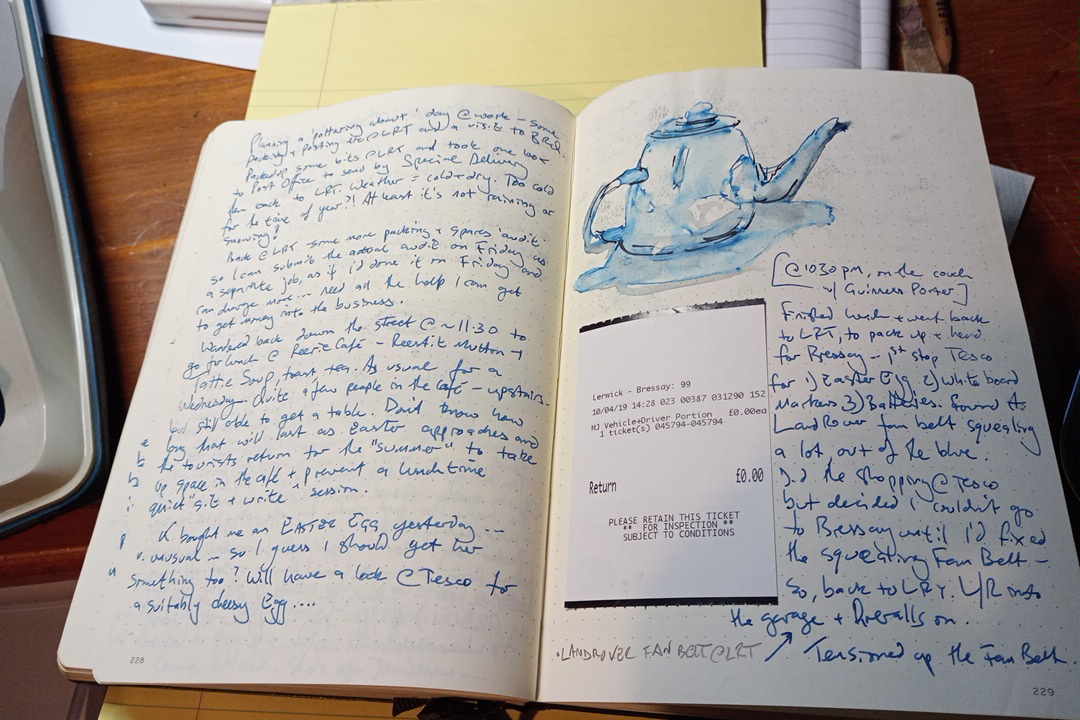 Planning a 'pottering about' day @ work - some
packing + posting @ LRT and a visit to BRE.
Packed up some bits @ LRT and took one box
to Post Office to send by Special Delivery
then back to LRT. Weather = cold + dry. Too cold
for the time of year?! At least it's not raining or
snowing!
Back @ LRT some more packing + spares 'audit'
so I can submit the actual audit on Friday as
a separate job, as if I'd done it on Friday and
can charge more... need all the help I can get
to get money into the business.
Wandered back down the street @ ~11:30 to
go for lunch @ Peerie Café - Reestit Mutton +
Tattie Soup, toast + tea. As usual for a
Wednesday. Quite a few people in the café - upstairs
but still able to get a table. Don't know how
long that will last as Easter approaches and
the tourists return for the "summer" to take
up space in the café + prevent a lunchtime
quiet "sit + write" session.
K bought me an EASTER EGG yesterday...
unusual - so I guess I should get her
something too? Will have a look @ Tesco for
a suitably cheesy Egg....
228
[@ 1030pm, on the couch
w/ Guinness Porter]
Finished lunch + went back
to LRT, to pack up + head
for Bressay - 1st stop Tesco
for 1) Easter Egg 2) White board
Markers 3) Batteries. Found the
LandRover fan belt squealing
a lot, out of the blue.
Did the shopping @ Tesco
but decided I couldn't go
to Bressay until I'd fixed
the squealing Fan Belt -
So, back to LRT. L/R into
the garage + Overalls on.
Tensioned up the Fan Belt.
Lerwick - Bressay: 99
10/04/19 14:28 023 00387 031290 152
MJ Vehicle+Driver Portion £0.00ea
1 ticket(s) 045794-045794
Return £0.00
PLEASE RETAIN THIS TICKET
** FOR INSPECTION **
SUBJECT TO CONDITIONS
• LANDROVER FAN BELT @ LRT
229